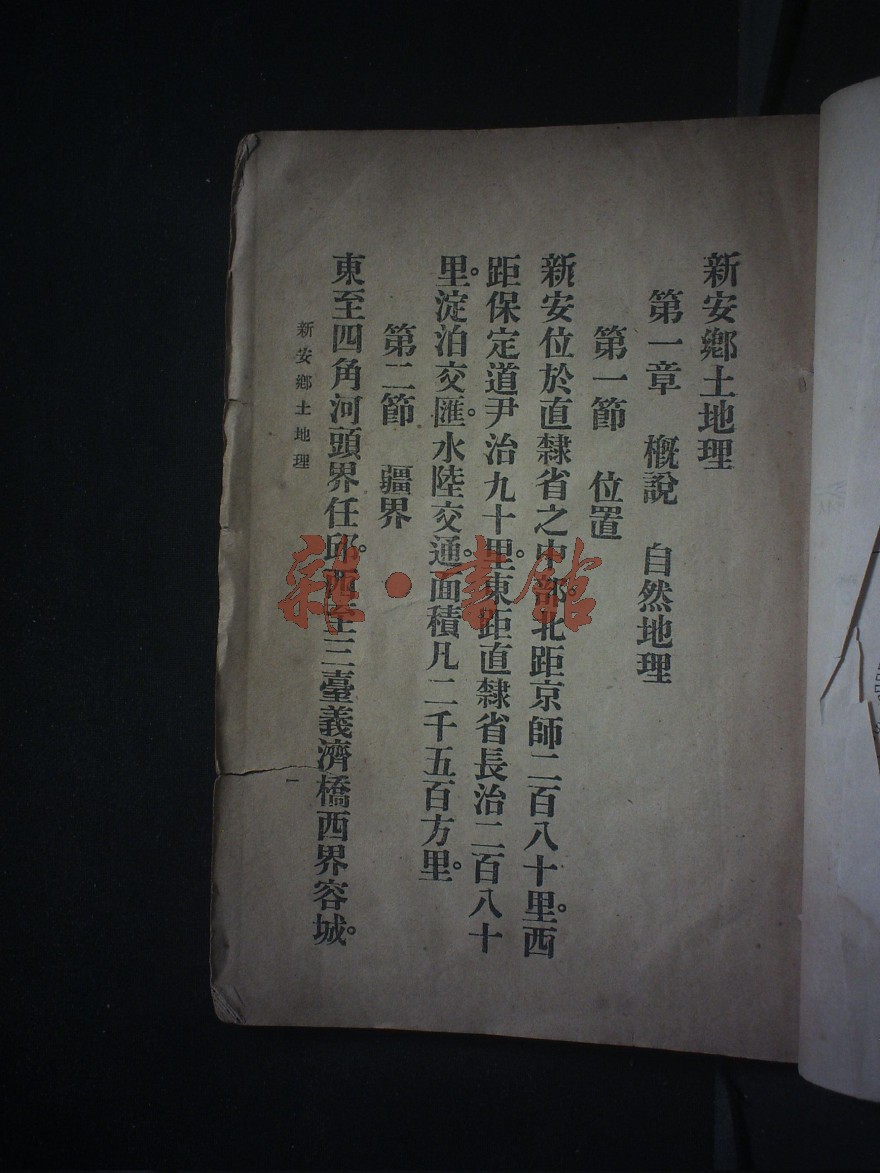 新安鄉土地理
第一章 概說 自然地理
第一節 位置
新安位於直隸省之中部。北距京師二百八十里。西
距保定道尹治九十里。東距直隸省長治二百八十
里。淀泊交匯。水陸交通。面積凡二千五百方里。
第二節 疆界
東至四角河頭界任邱。西至三臺義濟橋西界容城。
新安鄉土地理
一
雜·書館